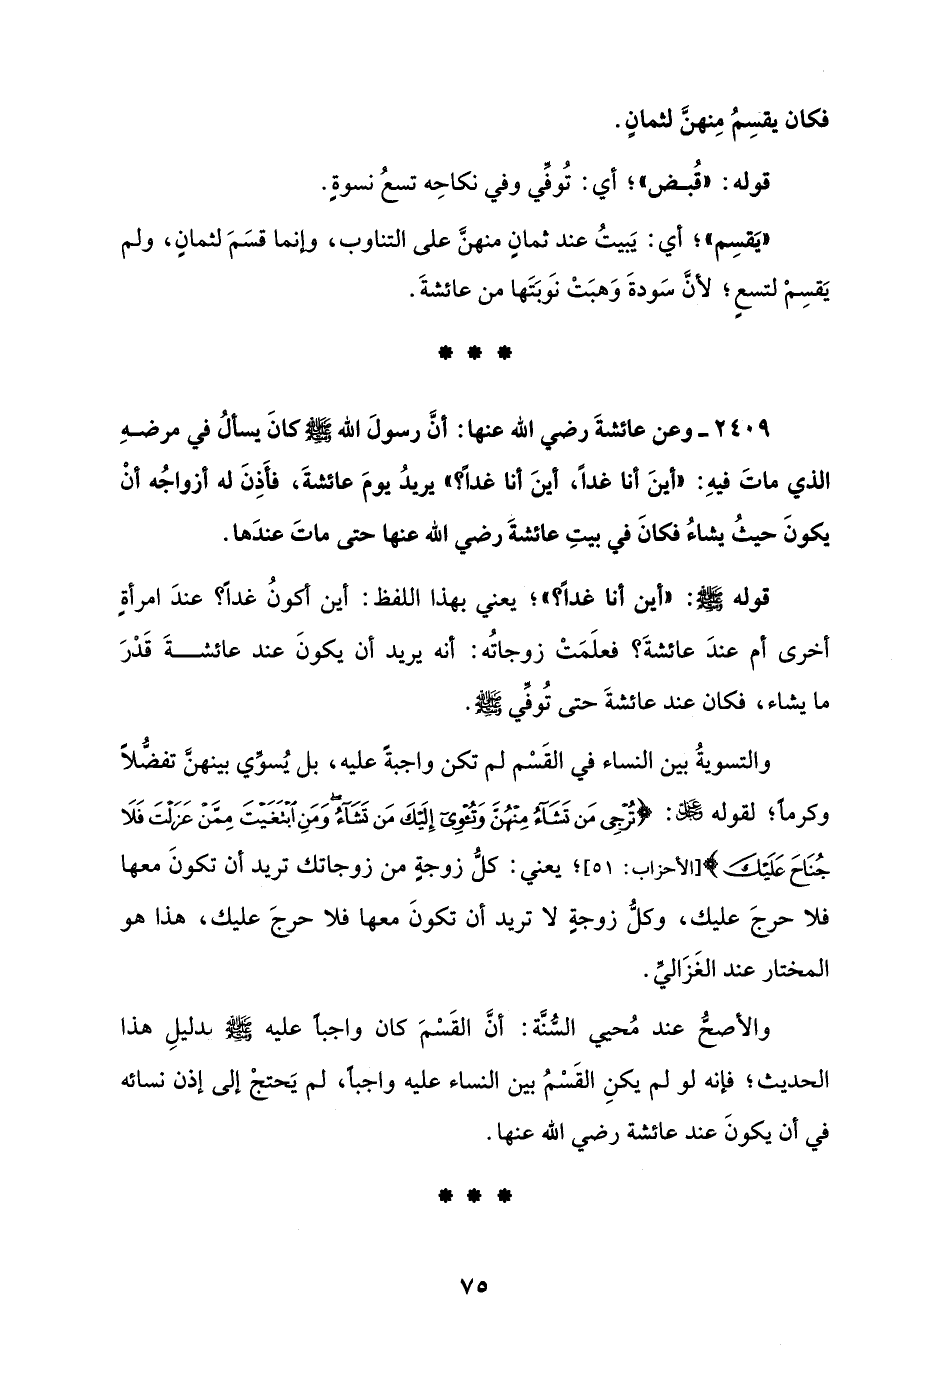 فكان يقسِمُ مِنهنَّ لثمانٍ.
قوله: «قُبـض»؛ أي: تُوفِّي وفي نكاحِه تسعُ نسوةٍ.
«يَقسِم»؛ أي: يَبيتُ عند ثمانٍ منهنَّ على التناوب، وإنما قسَمَ لثمانٍ، ولم
يَقسِمْ لتسعٍ؛ لأنَّ سَودةَ وَهبَتْ نَوبَتَها من عائشةَ.
* * *
٢٤٠٩ ـ وعن عائشةَ رضي الله عنها: أنَّ رسولَ الله ﷺ كانَ يسألُ في مرضـهِ
الذي ماتَ فيهِ: «أينَ أنا غداً، أينَ أنا غداً؟» يريدُ يومَ عائشةَ، فأَذِنَ له أزواجُه أنْ
يكونَ حيثُ يشاءُ فكانَ في بيتِ عائشةَ رضي الله عنها حتى ماتَ عندَها.
قوله ﷺ: «أين أنا غداً؟»؛ يعني بهذا اللفظ: أين أكونُ غداً؟ عندَ امرأةٍ
أخرى أم عندَ عائشةَ؟ فعلَمَتْ زوجاتُه: أنه يريد أن يكونَ عند عائشـــةَ قَدْرَ
ما يشاء، فكان عند عائشةَ حتى تُوفِّي ﷺ.
والتسويةُ بين النساء في القَسْم لم تكن واجبةً عليه، بل يُسوِّي بينهنَّ تفضُّلاً
وكرماً؛ لقوله ﷻ: ﴿تُرْجِى مَن تَشَآءُ مِنْهُنَّ وَتُـْٔوِىٓ إِلَيْكَ مَن تَشَآءُ ۖ وَمَنِ ٱبْتَغَيْتَ مِمَّنْ عَزَلْتَ فَلَا
جُنَاحَ عَلَيْكَ﴾ [الأحزاب: ٥١]؛ يعني: كلُّ زوجةٍ من زوجاتك تريد أن تكونَ معها
فلا حرجَ عليك، وكلُّ زوجةٍ لا تريد أن تكونَ معها فلا حرجَ عليك، هذا هو
المختار عند الغَزَاليِّ.
والأصحُّ عند مُحيي السُّنَّة: أنَّ القَسْمَ كان واجباً عليه ﷺ بدليلِ هذا
الحديث؛ فإنه لو لم يكنِ القَسْمُ بين النساء عليه واجباً، لم يَحتجْ إلى إذن نسائه
في أن يكونَ عند عائشة رضي الله عنها.
* * *
٧٥